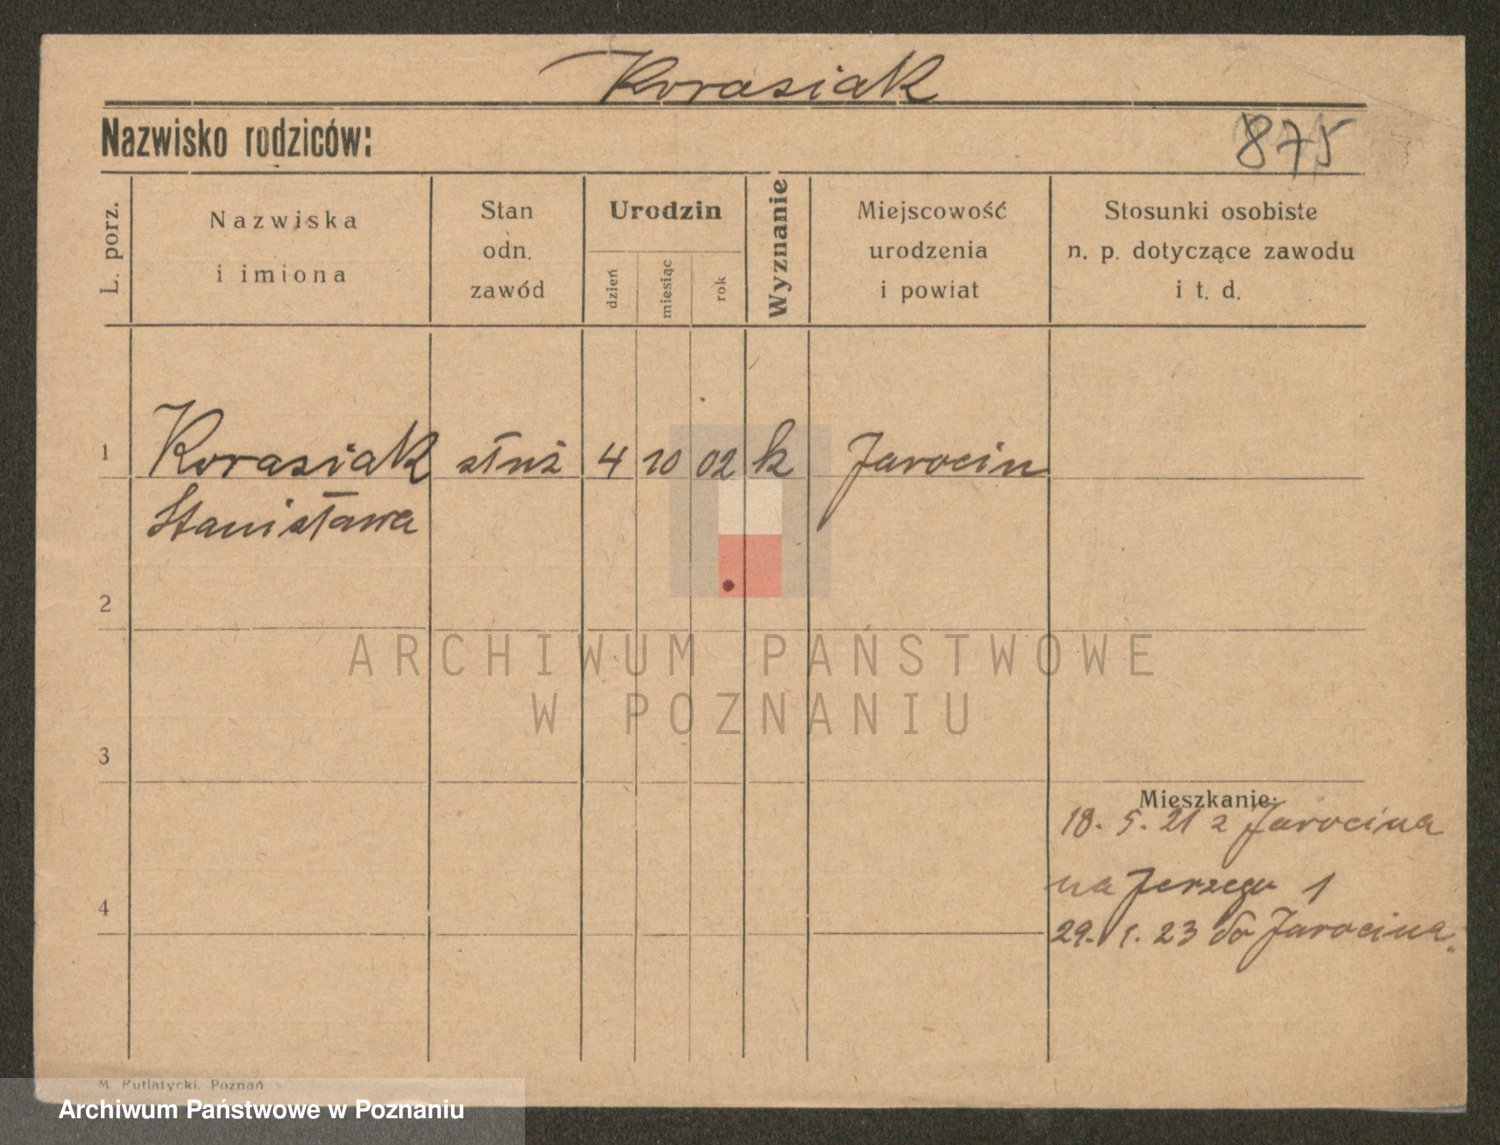 Korasiak
Nazwisko rodziców:
875
L. porz.
Nazwiska
i imiona
Stan
odn.
zawód
Urodzin
dzień
miesiąc
rok
Wyznanie
Miejscowość
urodzenia
i powiat
Stosunki osobiste
n. p. dotyczące zawodu
i t. d.
1
Korasiak służ 4 10 02 k Jarocin
Stanisława
2
ARCHIWUM PAŃSTWOWE
W POZNANIU
3
Mieszkanie:
18. 5. 21 z Jarocina
na Jerzego 1
4
29. 1. 23 do Jarocina.
M. Putiatycki, Poznań
Archiwum Państwowe w Poznaniu